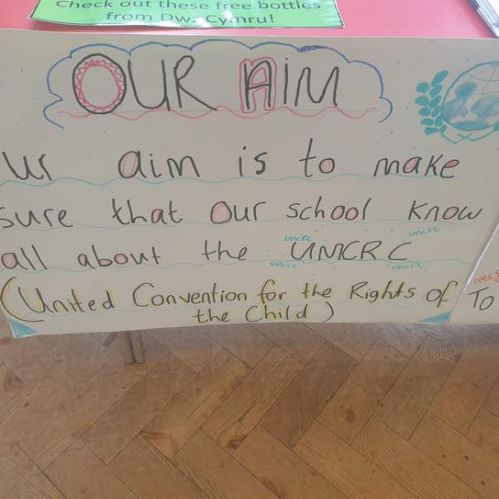 Check out these free bottles
from Dwr Cymru!
OUR AIM
ur aim is to make
sure that our school know
all about the UNCRC
uncrc
uncrc
uncrc
uncrc
(United Convention for the Rights of
the Child)
To